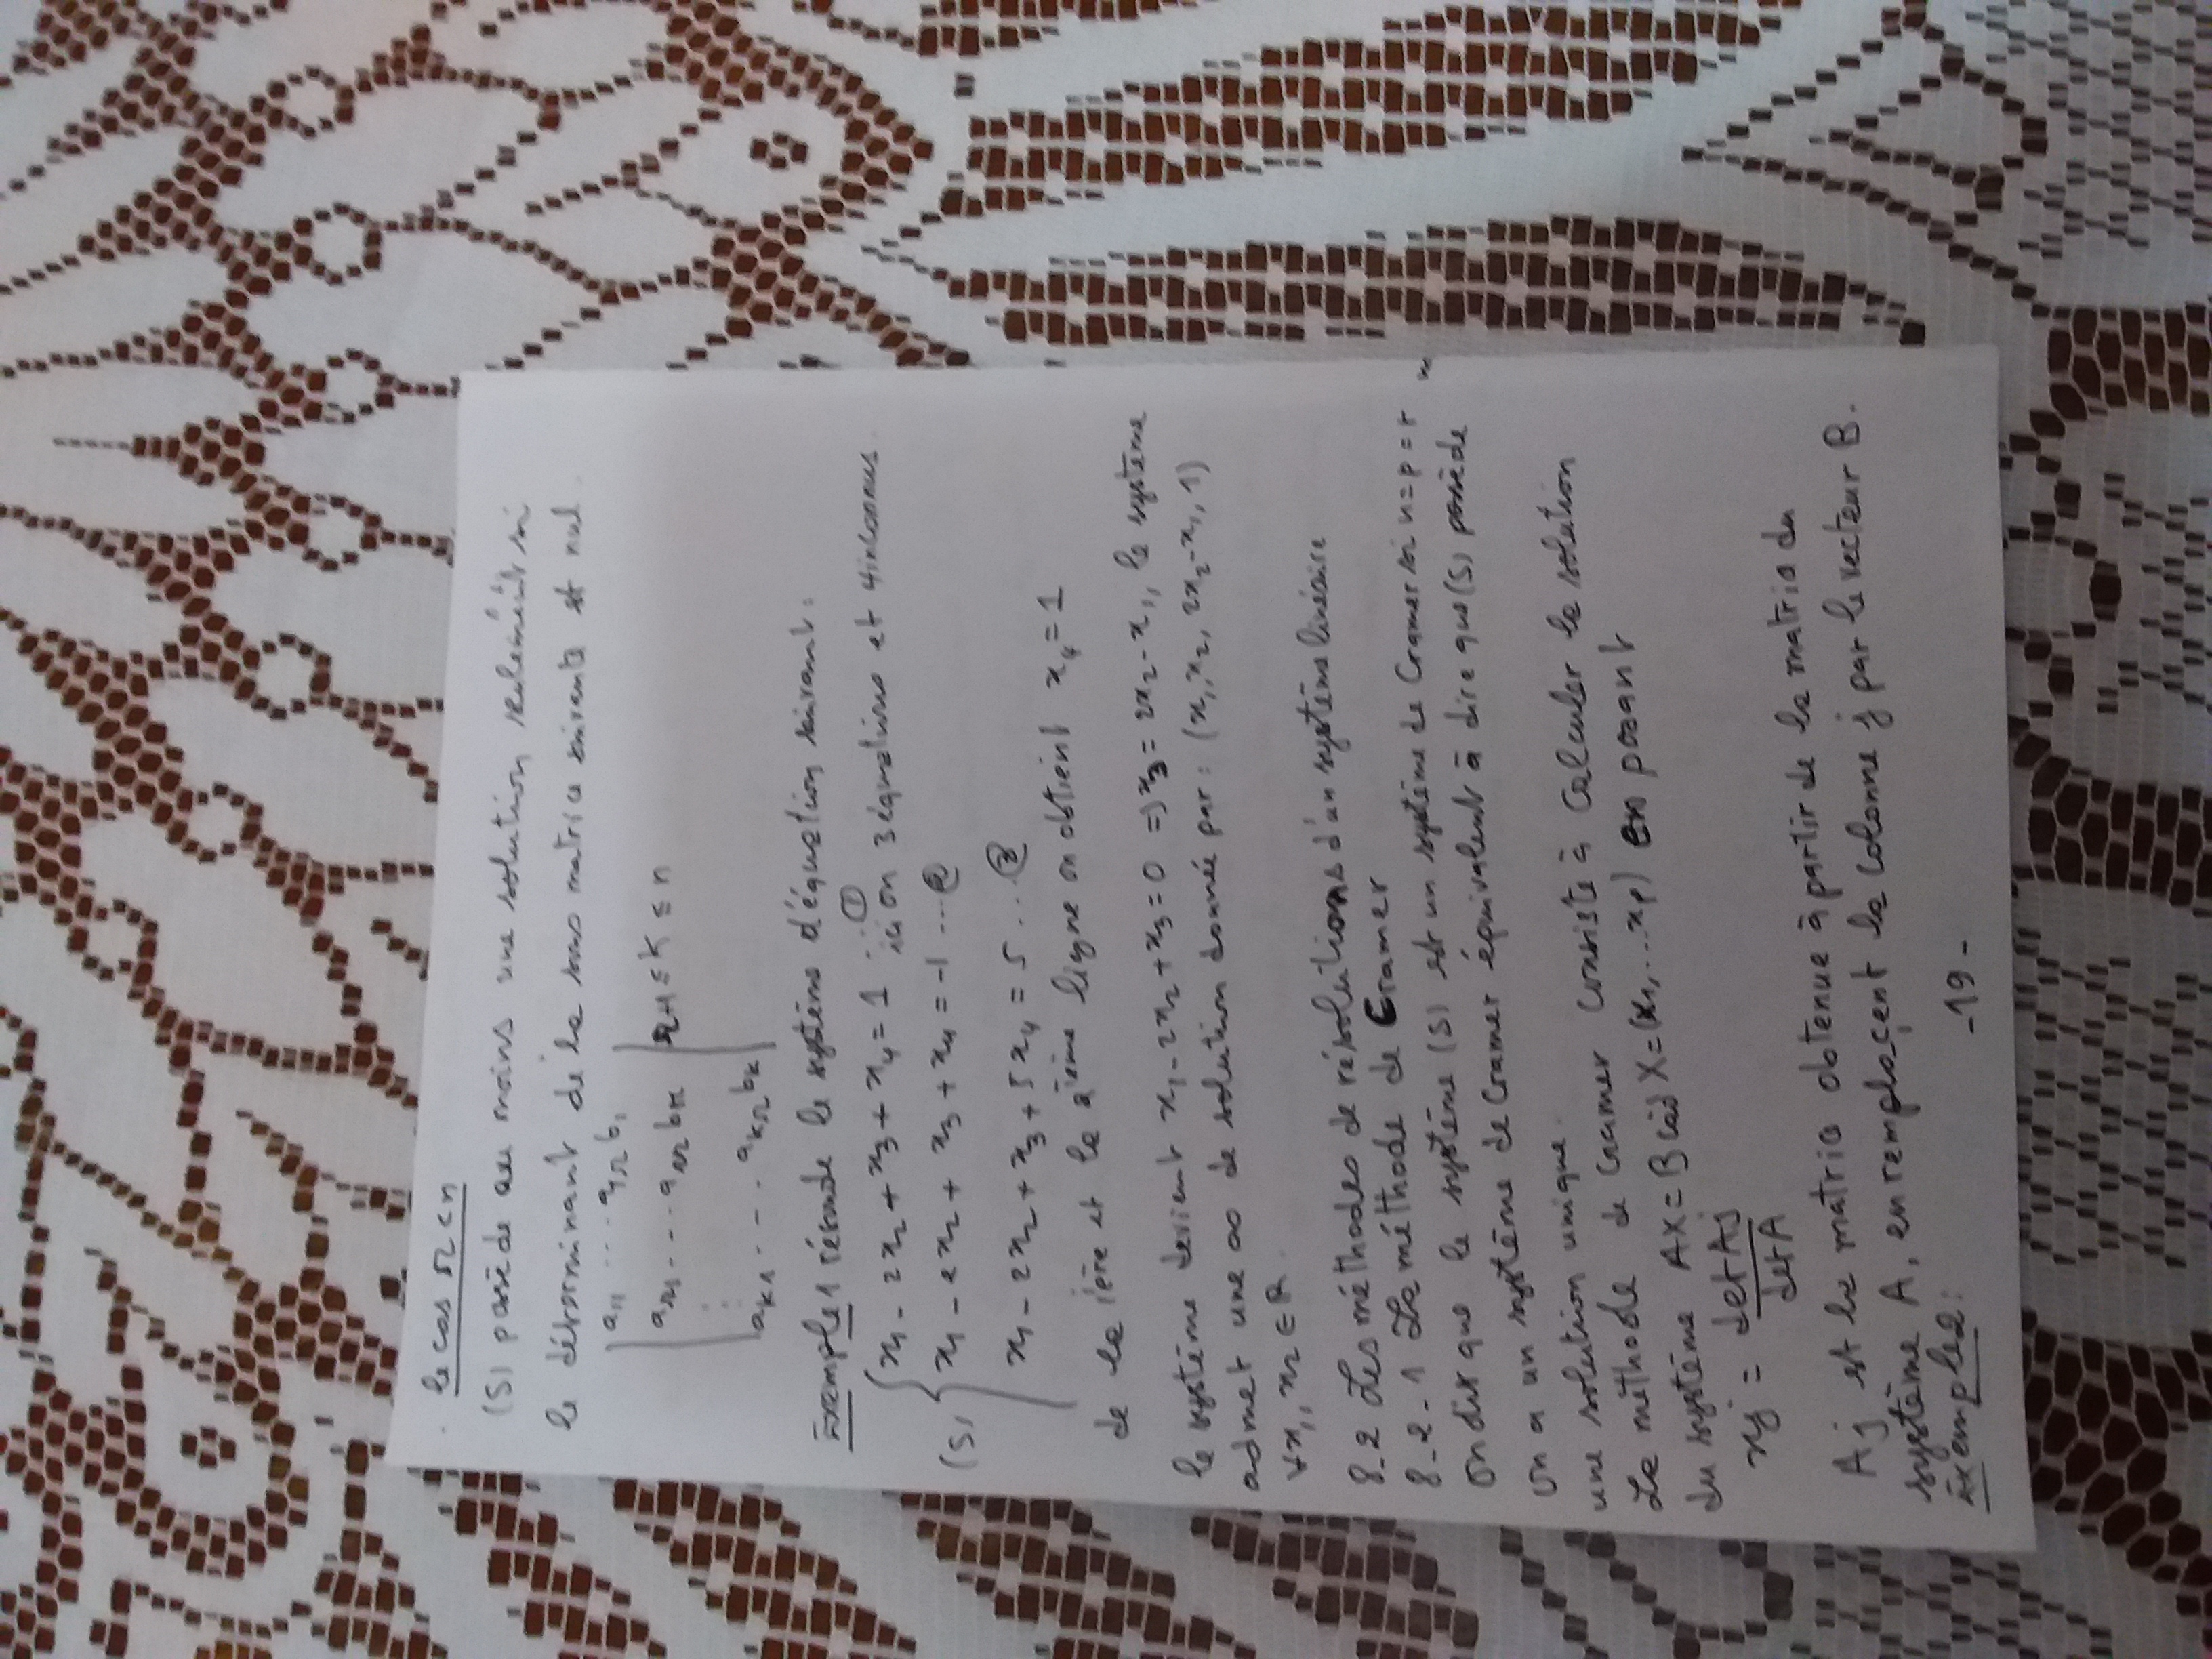 . le cas r < n
(S) possède au moins une solution seulement si
le déterminant de la sous matrice suivante st nul.
| a11 .... a1r b1
ar1 .... arr br | r+1 ≤ K ≤ n
aK1 .... aKr bK
Exemple 1 résoude le système d'équation suivant:
x1 - 2x2 + x3 + x4 = 1 ... ① ici on 3 équations et 4 inconnus
(S) { x1 - 2x2 + x3 + x4 = -1 ... ②
x1 - 2x2 + x3 + 5x4 = 5 ... ③
de la 1ère et la 2ième ligne on obtient x4 = 1
le système devient x1 - 2x2 + x3 = 0 => x3 = 2x2 - x1, le système
admet une ∞ de solution donnée par: (x1, x2, 2x2 - x1, 1)
∀x1, x2 ∈ R.
8_2 Les méthodes de résolutions d'un système linéaire
8_2-1 La méthode de Cramer
on dit que le système (S) est un système de Cramer si n = p = r
un système de Cramer équivalent à dire que (S) possède
on a
une solution unique.
La méthode de Cramer consiste à calculer la solution
du système AX = B càd X = (x1, ... xp) en posant
xj = det Aj / det A
Aj st la matrice obtenue à partir de la matrice du
système A, en remplaçent la colonne j par le vecteur B.
Exemple 2:
-19-